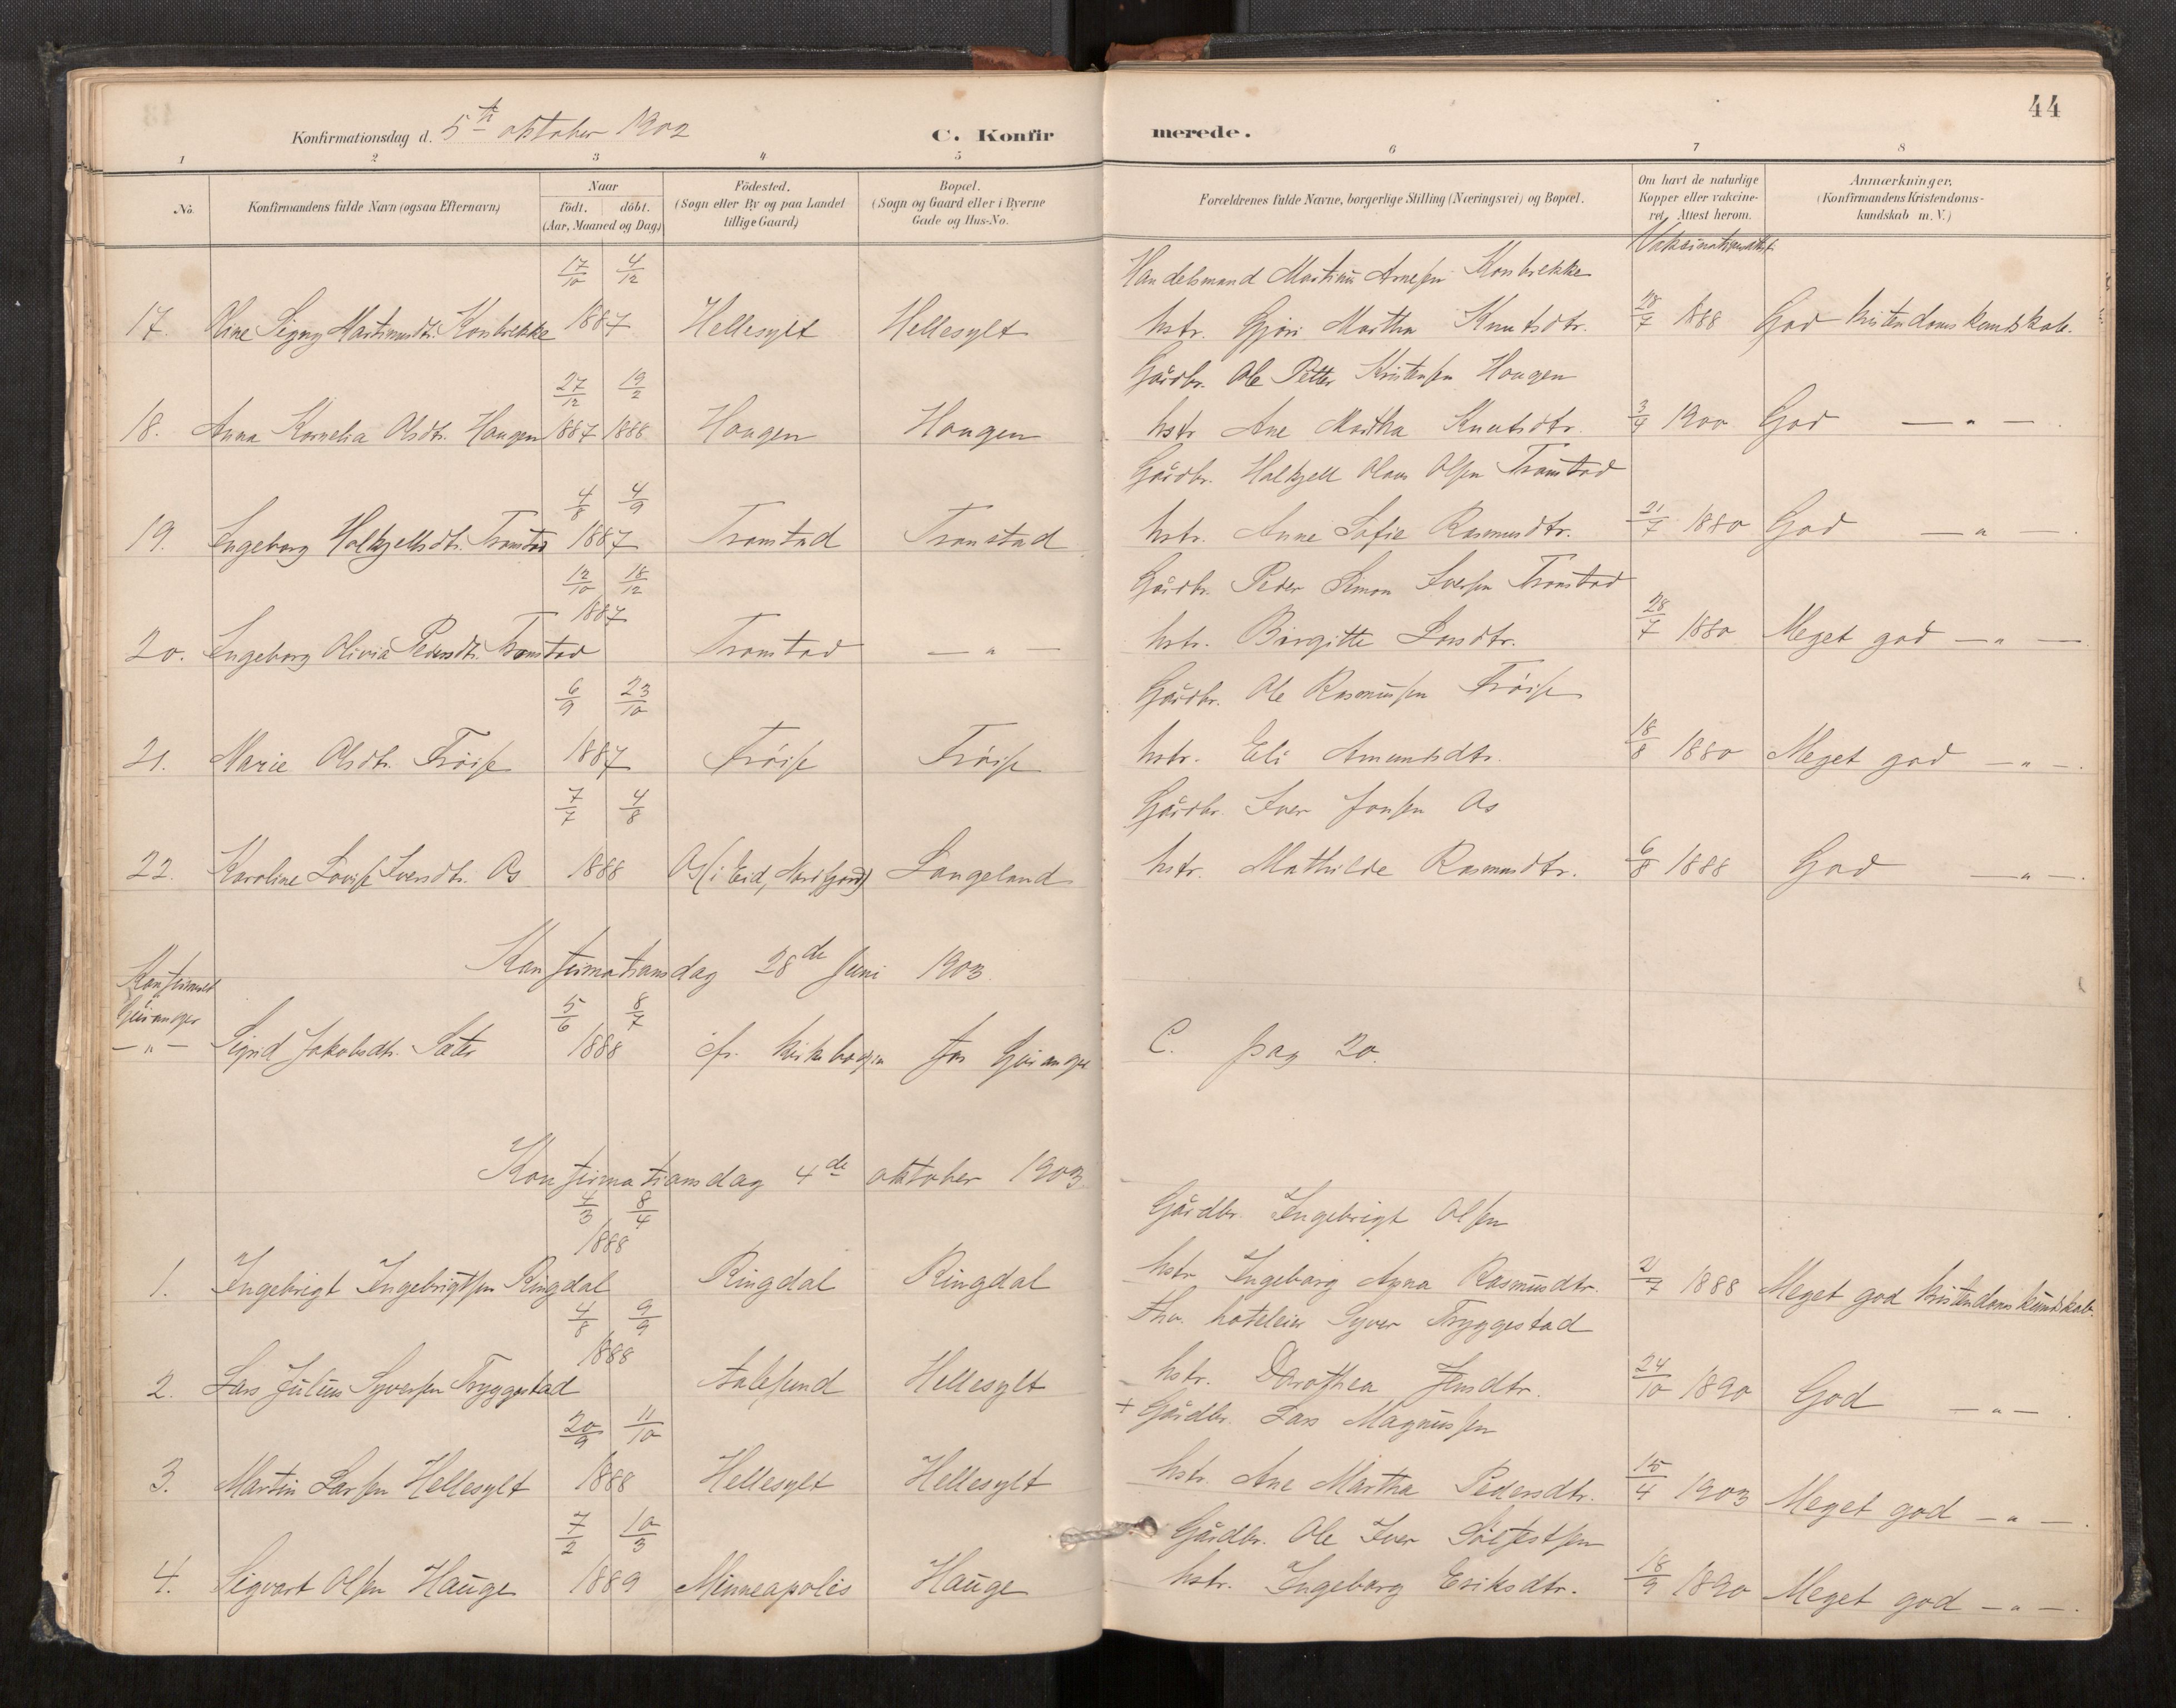 44
Konfirmationsdag d. 5te oktober 1902
C. Konfirmerede.
1 2 3 4 5 6 7 8
No.
Konfirmandens fulde Navn (ogsaa Efternavn)
Naar
födt. döbt.
(Aar, Maaned og Dag)
Födested.
(Sogn eller By og paa Landet
tillige Gaard)
Bopæl.
(Sogn og Gaard eller i Byerne
Gade og Hus-No.
Forældrenes fulde Navne, borgerlige Stilling (Næringsvei) og Bopæl.
Om havt de naturlige
Kopper eller vakcine-
ret. Attest herom.
Anmærkninger,
(Konfirmandens Kristendoms-
kundskab m. V.)
Vaksinationsattest
17/10 4/12 Handelsmand Martinus Arnesen Konbrekke
17. Oline Signy Martinusdtr. Konbrekke 1887 Hellesylt Hellesylt hstr. Gjøri Martha Knutsdtr. 28/7 1888 God kristendomskundskab.
27/12 19/2 Gårdbr. Ole Petter Kristensen Haugen
18. Anna Kornelia Olsdtr. Haugen 1887 1888 Haugen Haugen hstr. Ane Martha Knutsdtr. 3/4 1900 God — " —.
4/8 4/9 Gårdbr. Halkjell Olaus Olsen Tronstad
19. Ingeborg Halkjellsdtr. Tronstad 1887 Tronstad Tronstad hstr. Anne Sofie Rasmusdtr. 21/7 1880 God — " —.
12/10 18/12 Gårdbr. Peder Simon Iversen Tronstad
20. Ingeborg Olivia Pedersdtr. Tronstad 1887 Tronstad — " — hstr. Birgitte Larsdtr. 28/7 1880 Meget god — " —.
6/9 23/10 Gårdbr. Ole Rasmussen Frøise
21. Marie Olsdtr. Frøise 1887 Frøise Frøise hstr. Eli Amundsdtr. 18/8 1880 Meget god — " —.
7/7 4/8 Gårdbr. Iver Jonsen Os
22. Karoline Lovise Iversdtr. Os 1888 Os (i Eid, Nordfjord) Langeland hstr. Mathilde Rasmusdtr. 6/8 1888 God — " —.
Konfirmationsdag 28de Juni 1903.
Konfirmeret
Geiranger
5/6 8/7
— " — Sigrid Jakobsdtr. Sæter 1888 cfr. kirkebogen for Geiranger C. pag 20.
Konfirmationsdag 4de oktober 1903
4/3 8/4 Gårdbr. Ingebrigt Olsen
1. Ingebrigt Ingebrigtsen Ringdal 1888 Ringdal Ringdal hstr. Ingeborg Anna Rasmusdtr. 2/7 1888 Meget god kristendomskundskab.
4/8 9/9 Fhv. hoteleier Syver Tryggestad
2. Lars Julius Syversen Tryggestad 1888 Aalesund Hellesylt hstr. Dorothea Jensdtr. 24/10 1890 God — " —.
20/9 11/10 + Gårdbr. Lars Magnussen
3. Martin Larsen Hellesylt 1888 Hellesylt Hellesylt hstr. Ane Martha Pedersdtr. 15/4 1903 Meget god — " —.
7/2 10/3 Gårdbr. Ole Iver Sølfestsen
4. Sigvart Olsen Hauge 1889 Minneapolis Hauge hstr. Ingeborg Eriksdtr. 18/9 1890 Meget god — " —.